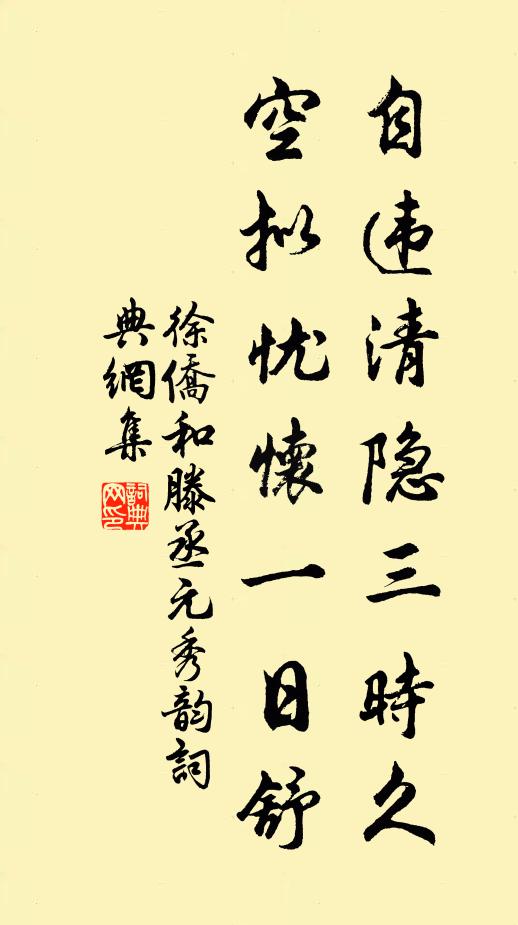 自违清隐三時久
空拟忧懷一日舒
徐僑和滕丞元秀韵詞
典網集
詞典网印